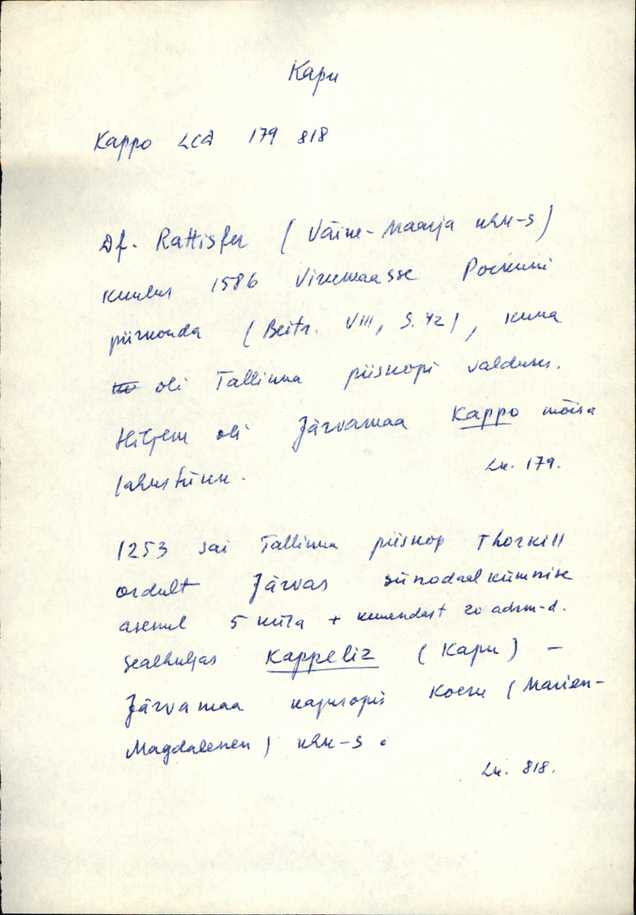 Kapu
Kappo LCD 179 818
Df. Rattisfer (Väine-Maarja khk-s)
kuulus 1586 Virumaasse Poikuni
piirkonda (Beitr. VIII, S. 42), kuna
oli Tallinna piiskopi valduses.
Hiljem oli Järvamaa Kappo mõisa
lahustükk.
Lk. 179.
1253 sai Tallinna piiskop Thorkill
ordult Järvas sünodaalkümnise
asemel 5 küla + kumendast 20 adrm-d.
Sealhulgas Kappeliz (Kapu) –
Järvamaa kagusopis Koeru (Marien-
Magdalenen) khk-s.
Lk. 818.